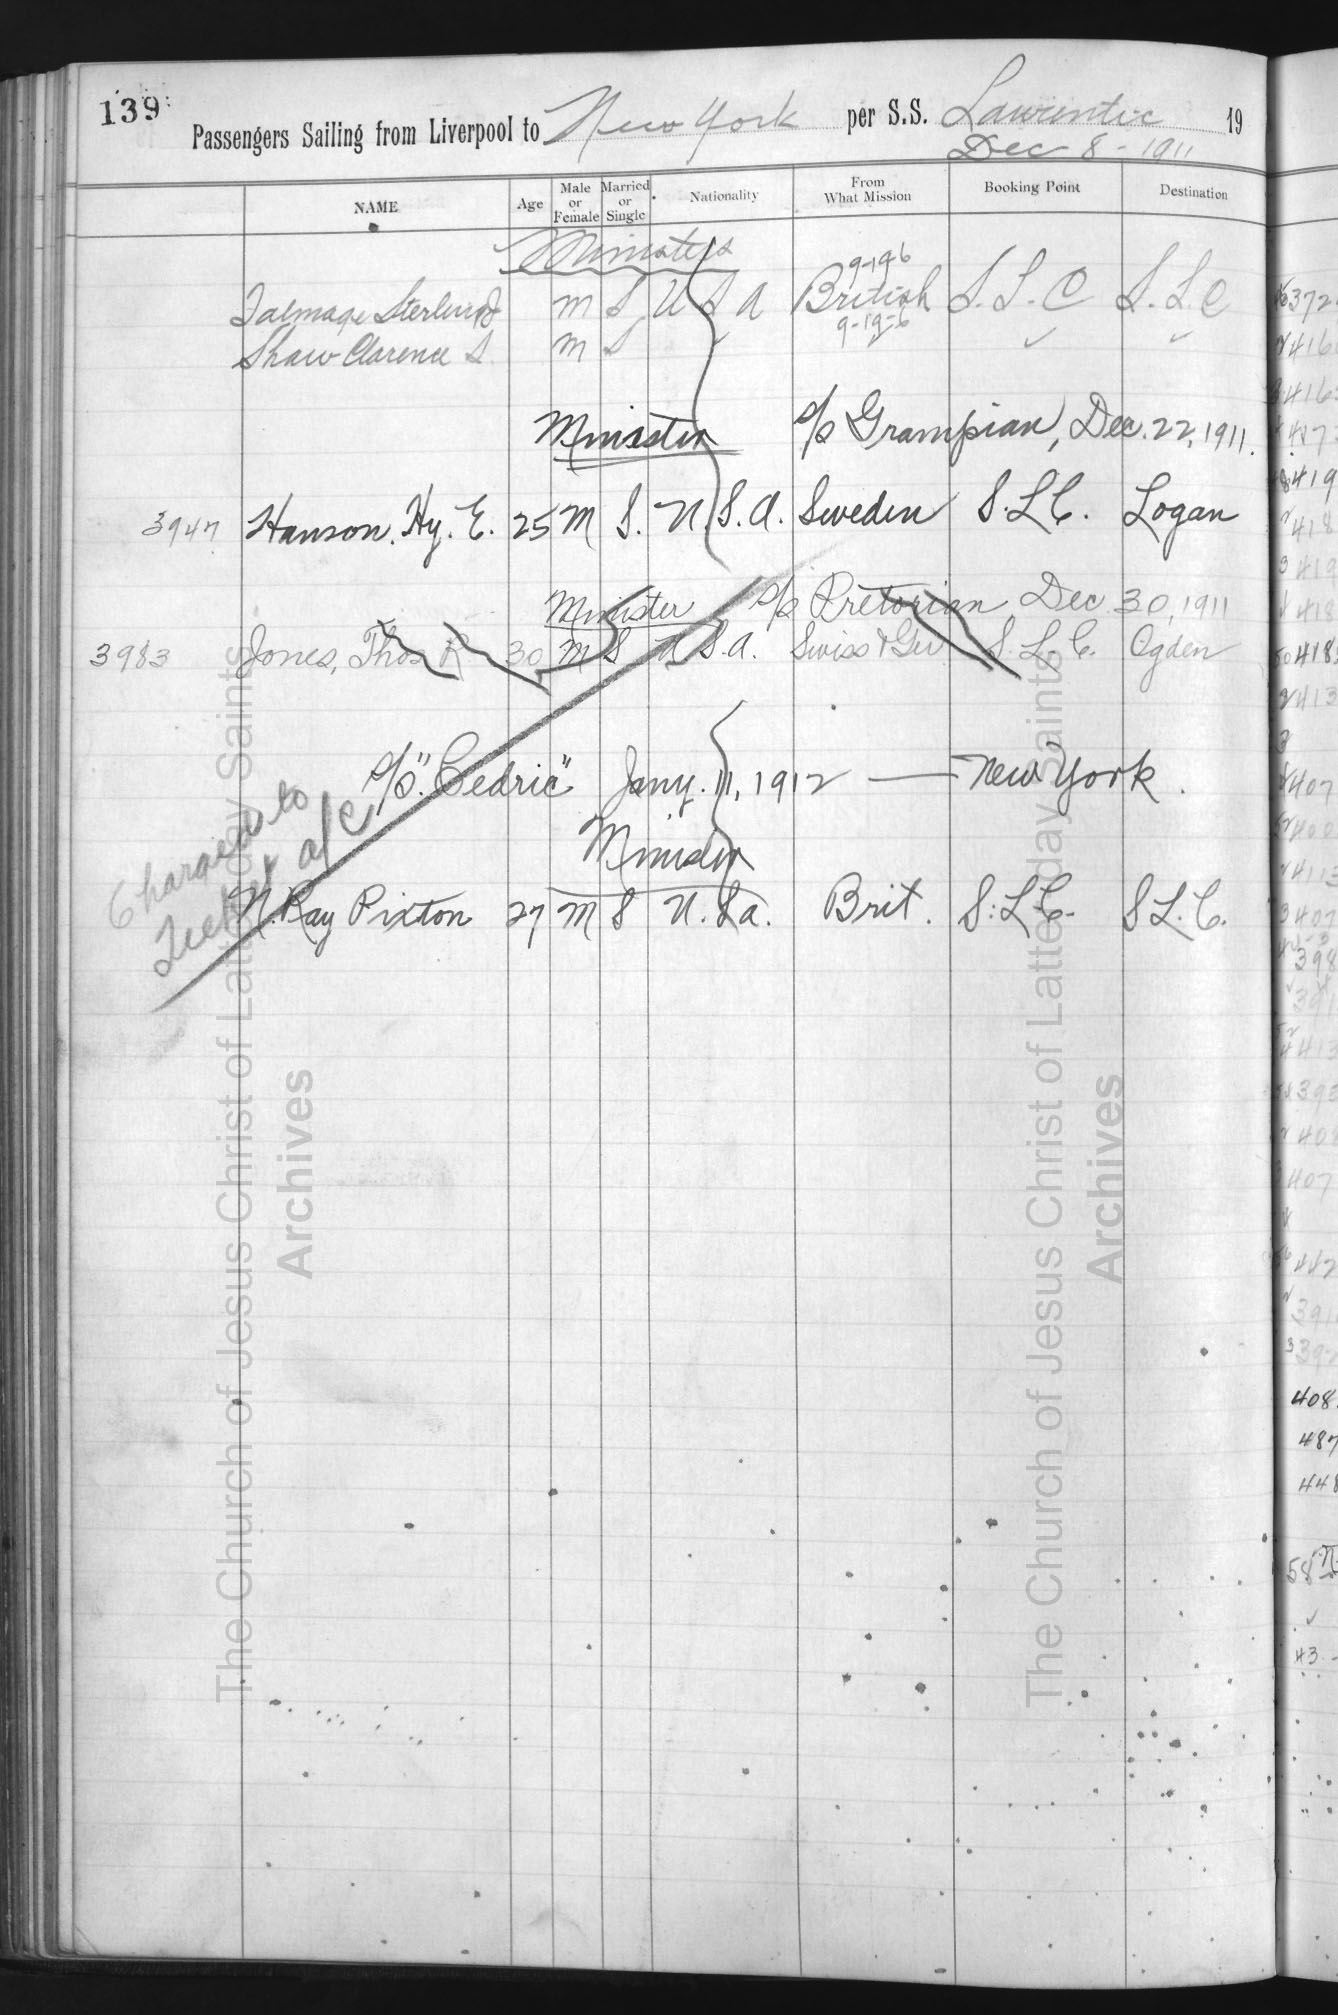 139
Passengers Sailing from Liverpool to New York per S.S. Laurentic 19
Dec 8 - 1911
NAME Age Male or Female Married or Single Nationality From What Mission Booking Point Destination
Ministers
9-19-6
Talmage Sterling B M S U S A British S. L. C S. L C
9-19-6
Shaw Clarence S. M S
Minister s/s Grampian, Dec. 22, 1911.
3947 Hanson, Hy. E. 25 M S. U.S.A. Sweden S.L.C. Logan
Minister s/s Pretorian Dec 30, 1911
3983 Jones, Thos R 30 M S U S.A. Swiss & Ger S.L.C. Ogden
s/s "Cedric" Jany. 11, 1912 — New York.
Minister
Charged to
Ticket a/c
N. Ray Pixton 27 M S U.S.a. Brit. S.L.C. S L.C.
The Church of Jesus Christ of Latter-day Saints
Archives
The Church of Jesus Christ of Latter-day Saints
Archives
372
416
416
417
419
418
419
418
418
413
407
400
411
407
398
391
413
393
407
442
391
397
408
487
448
58
43